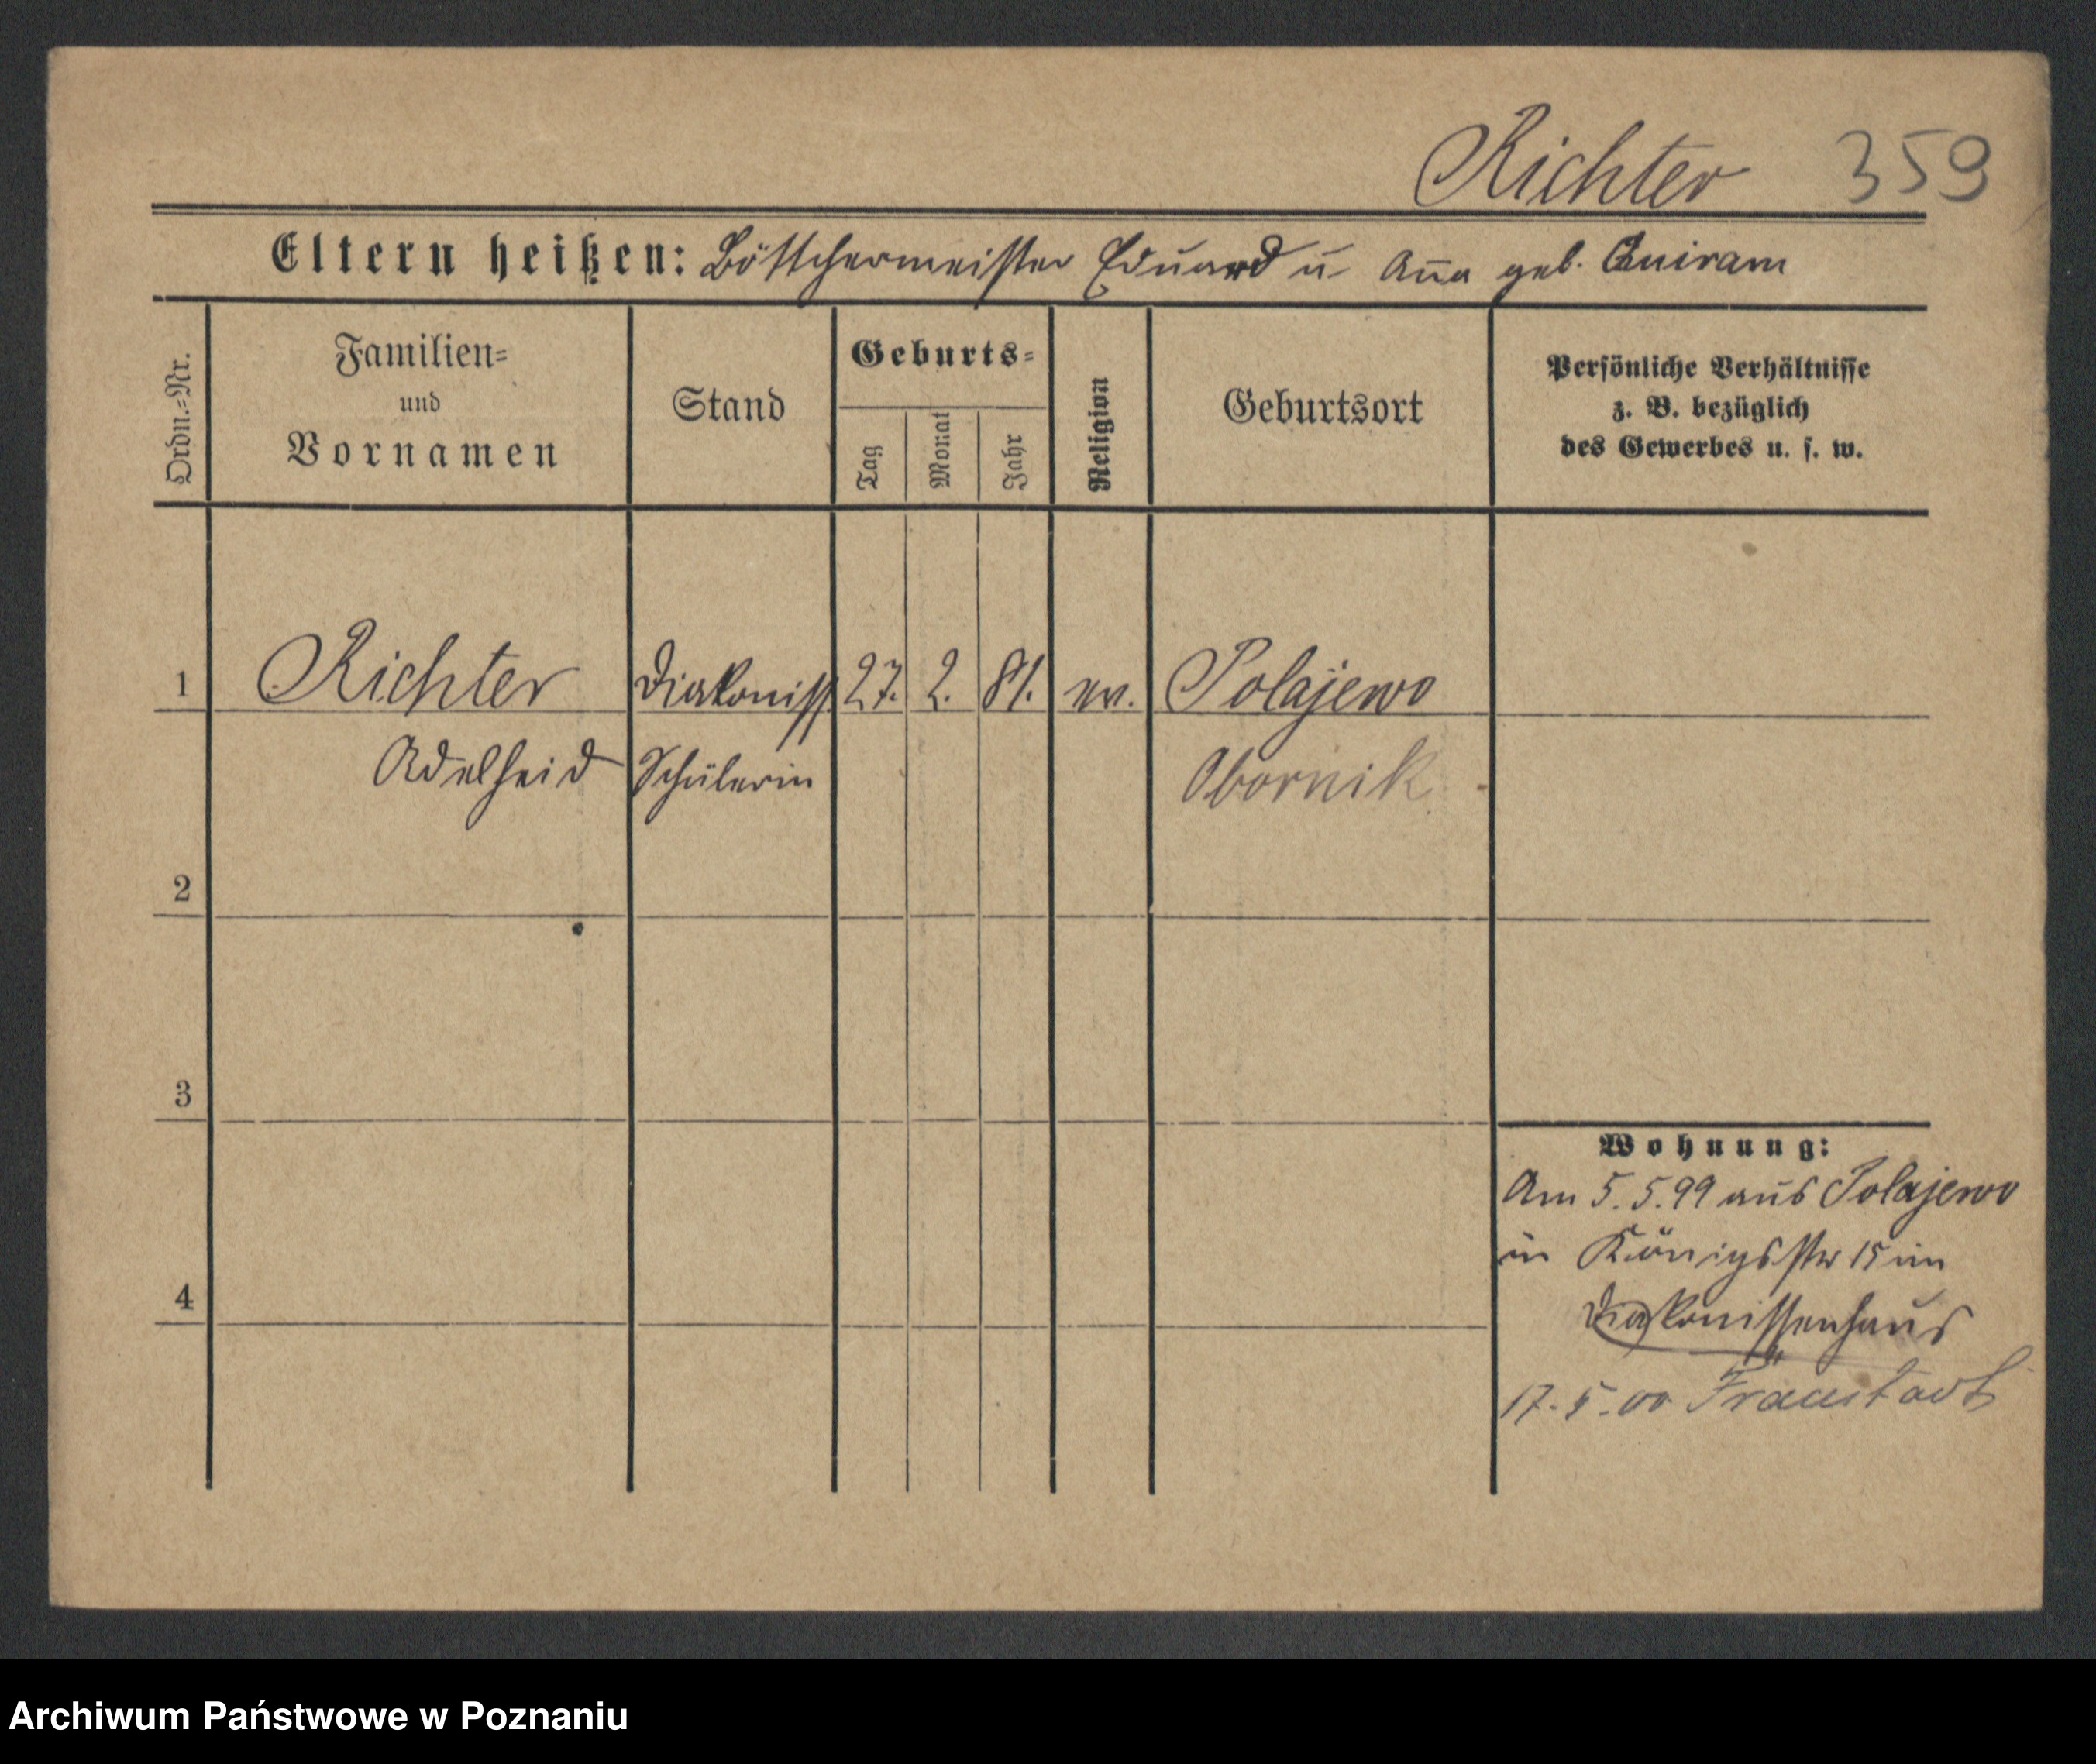 Richter 359
Eltern heißen: Böttchermeister Eduard u. Anna geb. Quiram
Ordn.=Nr.
Familien=
und
Vornamen
Stand
Geburts=
Tag
Monat
Jahr
Religion
Geburtsort
Persönliche Verhältnisse
z. B. bezüglich
des Gewerbes u. s. w.
1 Richter Diakoniss. 27. 2. 81. ev. Polajewo
Adelheid Schülerin Obornik
2
3
Wohnung:
Am 5.5.99 aus Polajewo
in Königsstr 15 im
4
Diakonissenhaus
17.5.00 Fraustadt
Archiwum Państwowe w Poznaniu